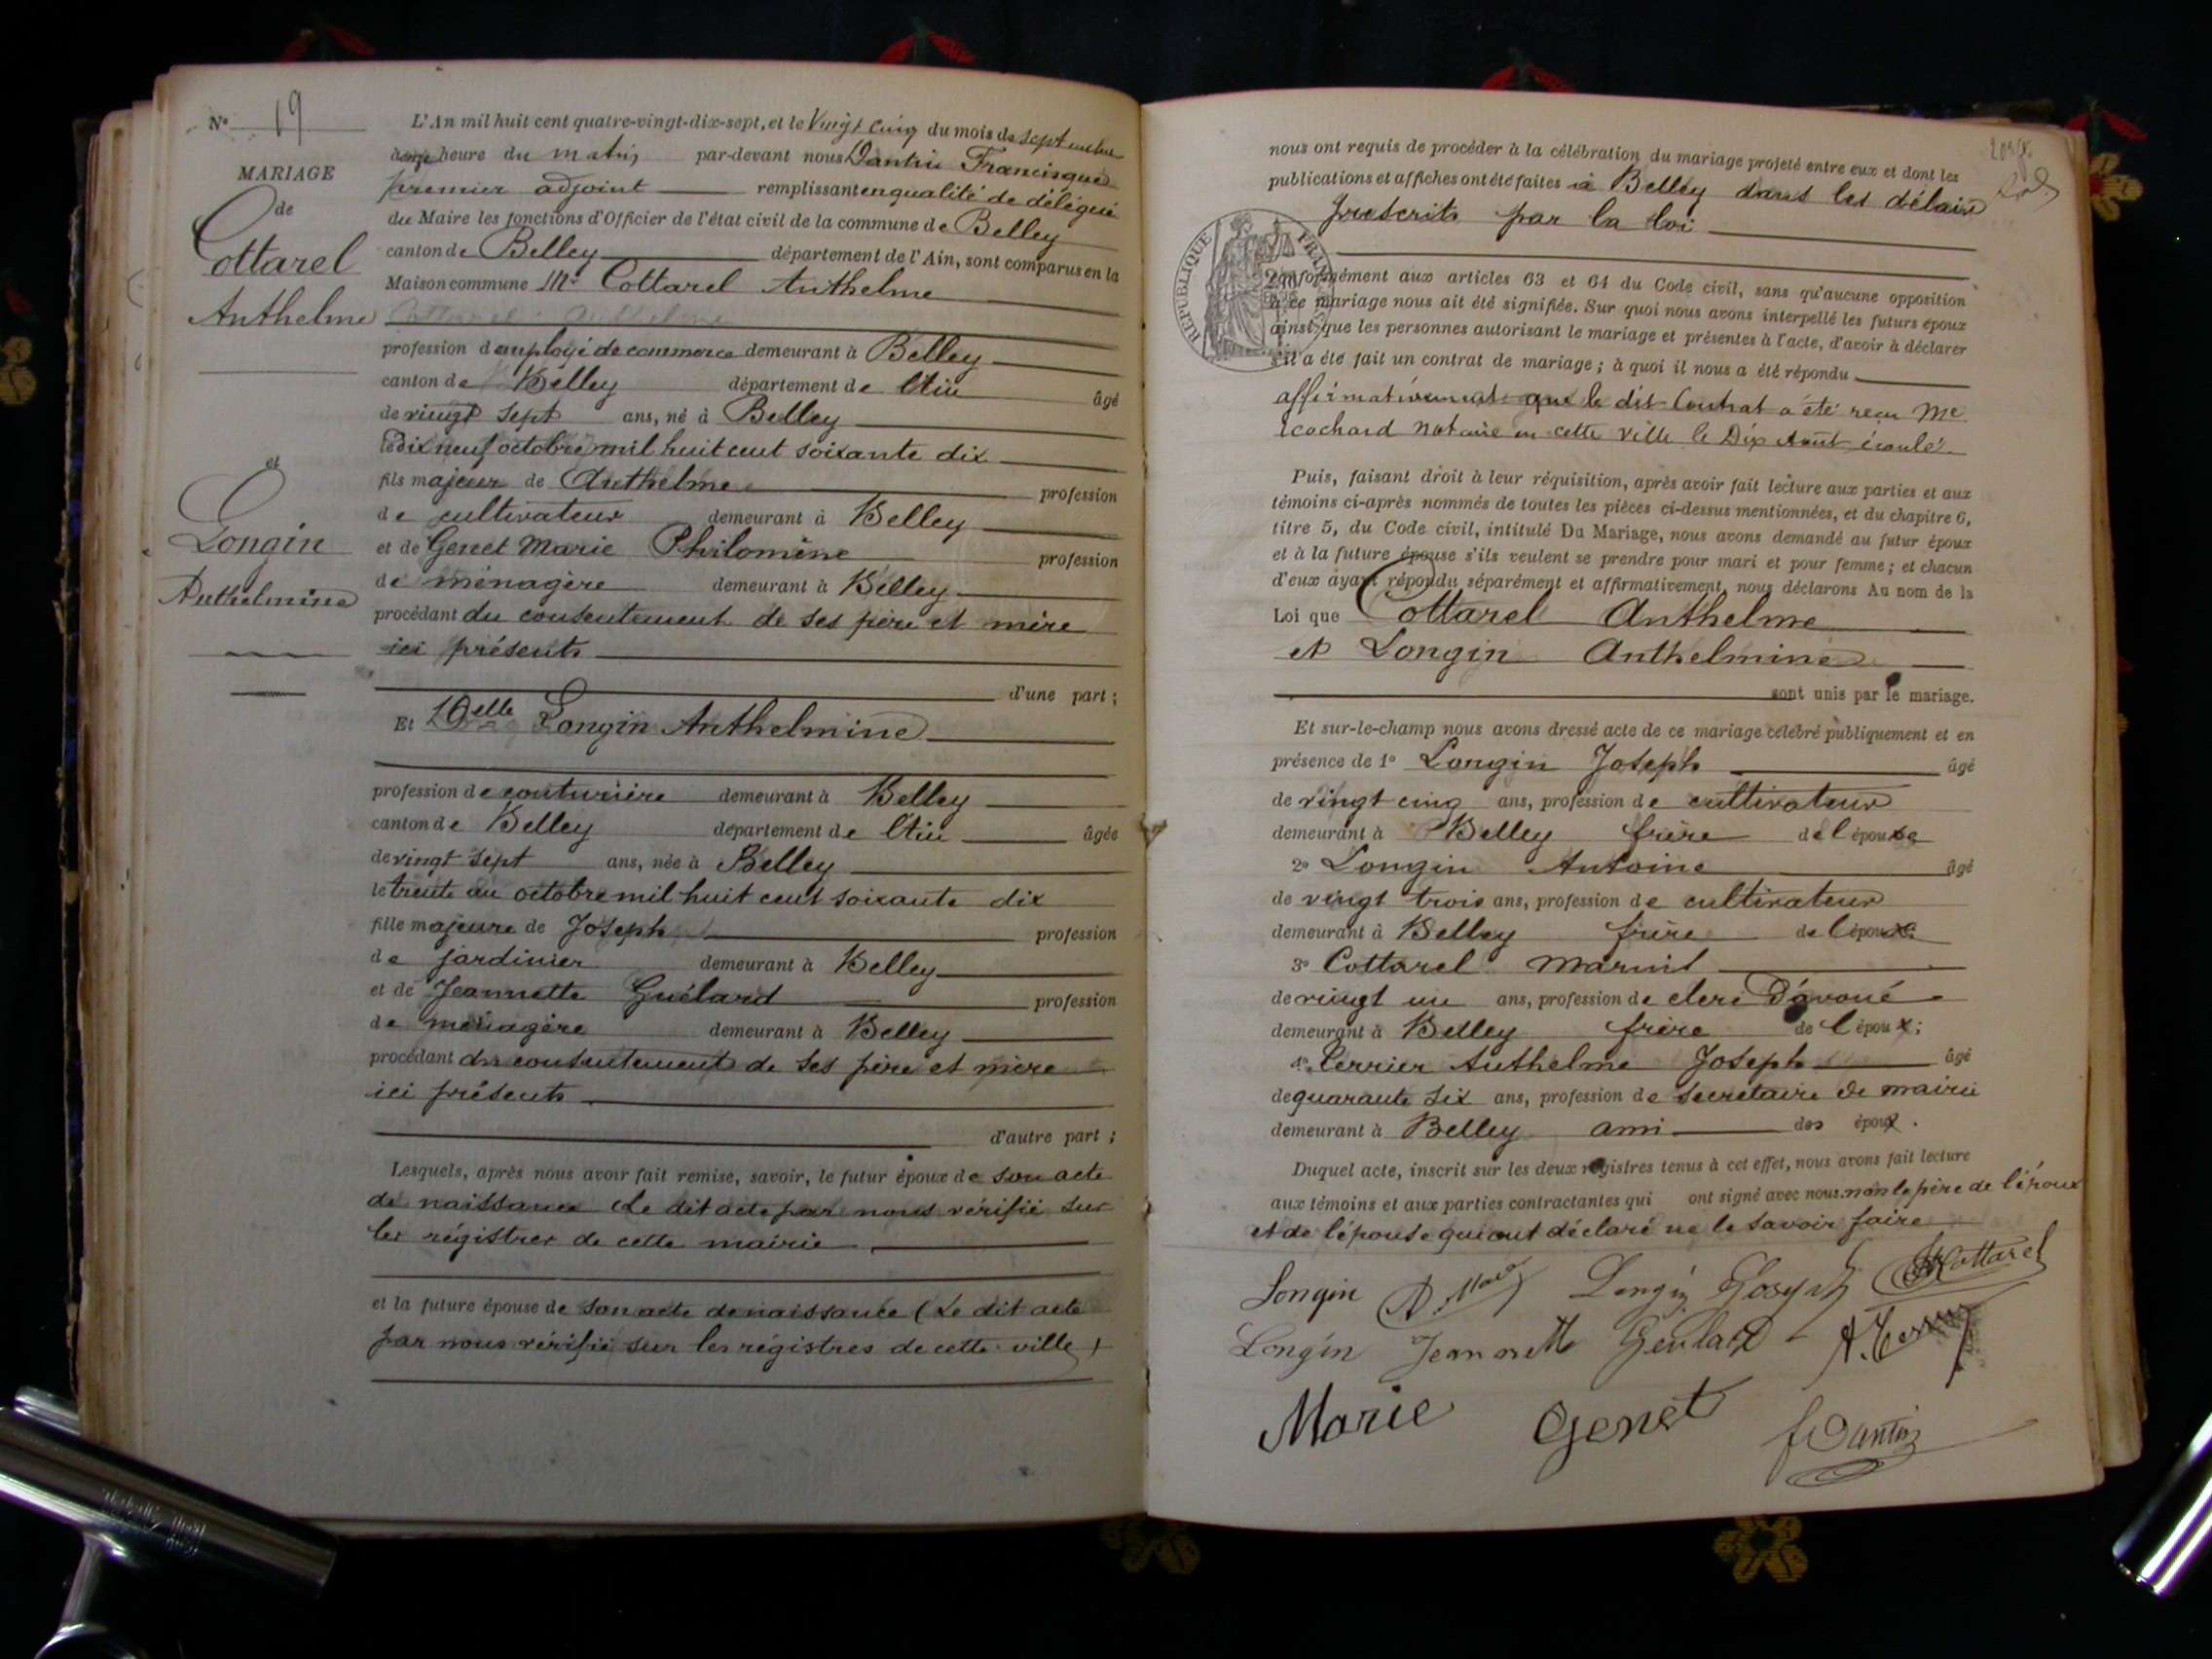 N° 19
MARIAGE
de
Cottarel
Anthelme
et
Longin
Anthelmine
L'An mil huit cent quatre-vingt-dix-sept, et le Vingt cinq du mois de septembre
heure du matin par-devant nous Dantin Francisque
premier adjoint remplissant en qualité de délégué
du Maire les fonctions d'Officier de l'état civil de la commune de Belley
canton de Belley département de l'Ain, sont comparus en la
Maison commune Mr Cottarel Anthelme
Cottarel Anthelme
profession d'employé de commerce demeurant à Belley
canton de Belley département de l'Ain âgé
de vingt sept ans, né à Belley
le dix neuf octobre mil huit cent soixante dix
fils majeur de Anthelme profession
de cultivateur demeurant à Belley
et de Genet Marie Philomène profession
de ménagère demeurant à Belley
procédant du consentement de ses père et mère
ici présents
d'une part ;
Et Delle Longin Anthelmine
profession de couturière demeurant à Belley
canton de Belley département de l'Ain âgée
de vingt sept ans, née à Belley
le trente un octobre mil huit cent soixante dix
fille majeure de Joseph profession
de jardinier demeurant à Belley
et de Jeannette Guélard profession
de ménagère demeurant à Belley
procédant du consentement de ses père et mère
ici présents
d'autre part ;
Lesquels, après nous avoir fait remise, savoir, le futur époux de son acte
de naissance (Le dit acte par nous vérifié sur
les régistres de cette mairie
et la future épouse de son acte de naissance (Le dit acte
par nous vérifié sur les régistres de cette ville)
nous ont requis de procéder à la célébration du mariage projeté entre eux et dont les
publications et affiches ont été faites à Belley dans les délais
prescrits par la loi
RÉPUBLIQUE FRANÇAISE
conformément aux articles 63 et 64 du Code civil, sans qu'aucune opposition
à ce mariage nous ait été signifiée. Sur quoi nous avons interpellé les futurs époux
ainsi que les personnes autorisant le mariage et présentes à l'acte, d'avoir à déclarer
s'il a été fait un contrat de mariage ; à quoi il nous a été répondu
affirmativement que le dit Contrat a été reçu Me
cochard Notaire en cette ville le Dix Août écoulé.
Puis, faisant droit à leur réquisition, après avoir fait lecture aux parties et aux
témoins ci-après nommés de toutes les pièces ci-dessus mentionnées, et du chapitre 6,
titre 5, du Code civil, intitulé Du Mariage, nous avons demandé au futur époux
et à la future épouse s'ils veulent se prendre pour mari et pour femme ; et chacun
d'eux ayant répondu séparément et affirmativement, nous déclarons Au nom de la
Loi que Cottarel Anthelme
et Longin Anthelmine
sont unis par le mariage.
Et sur-le-champ nous avons dressé acte de ce mariage célébré publiquement et en
présence de 1° Longin Joseph âgé
de vingt cinq ans, profession de cultivateur
demeurant à Belley frère de l'épouse
2° Longin Antoine âgé
de vingt trois ans, profession de cultivateur
demeurant à Belley frère de l'épouse
3° Cottarel Marius
de vingt un ans, profession de clerc D'avoué
demeurant à Belley frère de l'époux ;
4° Perrier Anthelme Joseph âgé
de quarante six ans, profession de secrétaire de mairie
demeurant à Belley ami des époux.
Duquel acte, inscrit sur les deux registres tenus à cet effet, nous avons fait lecture
aux témoins et aux parties contractantes qui ont signé avec nous non le père de l'époux
et de l'épouse qui ont déclaré ne le savoir faire
Longin Longin Joseph Cottarel
Longin Jeannette Geulard
Marie Genet F Dantin